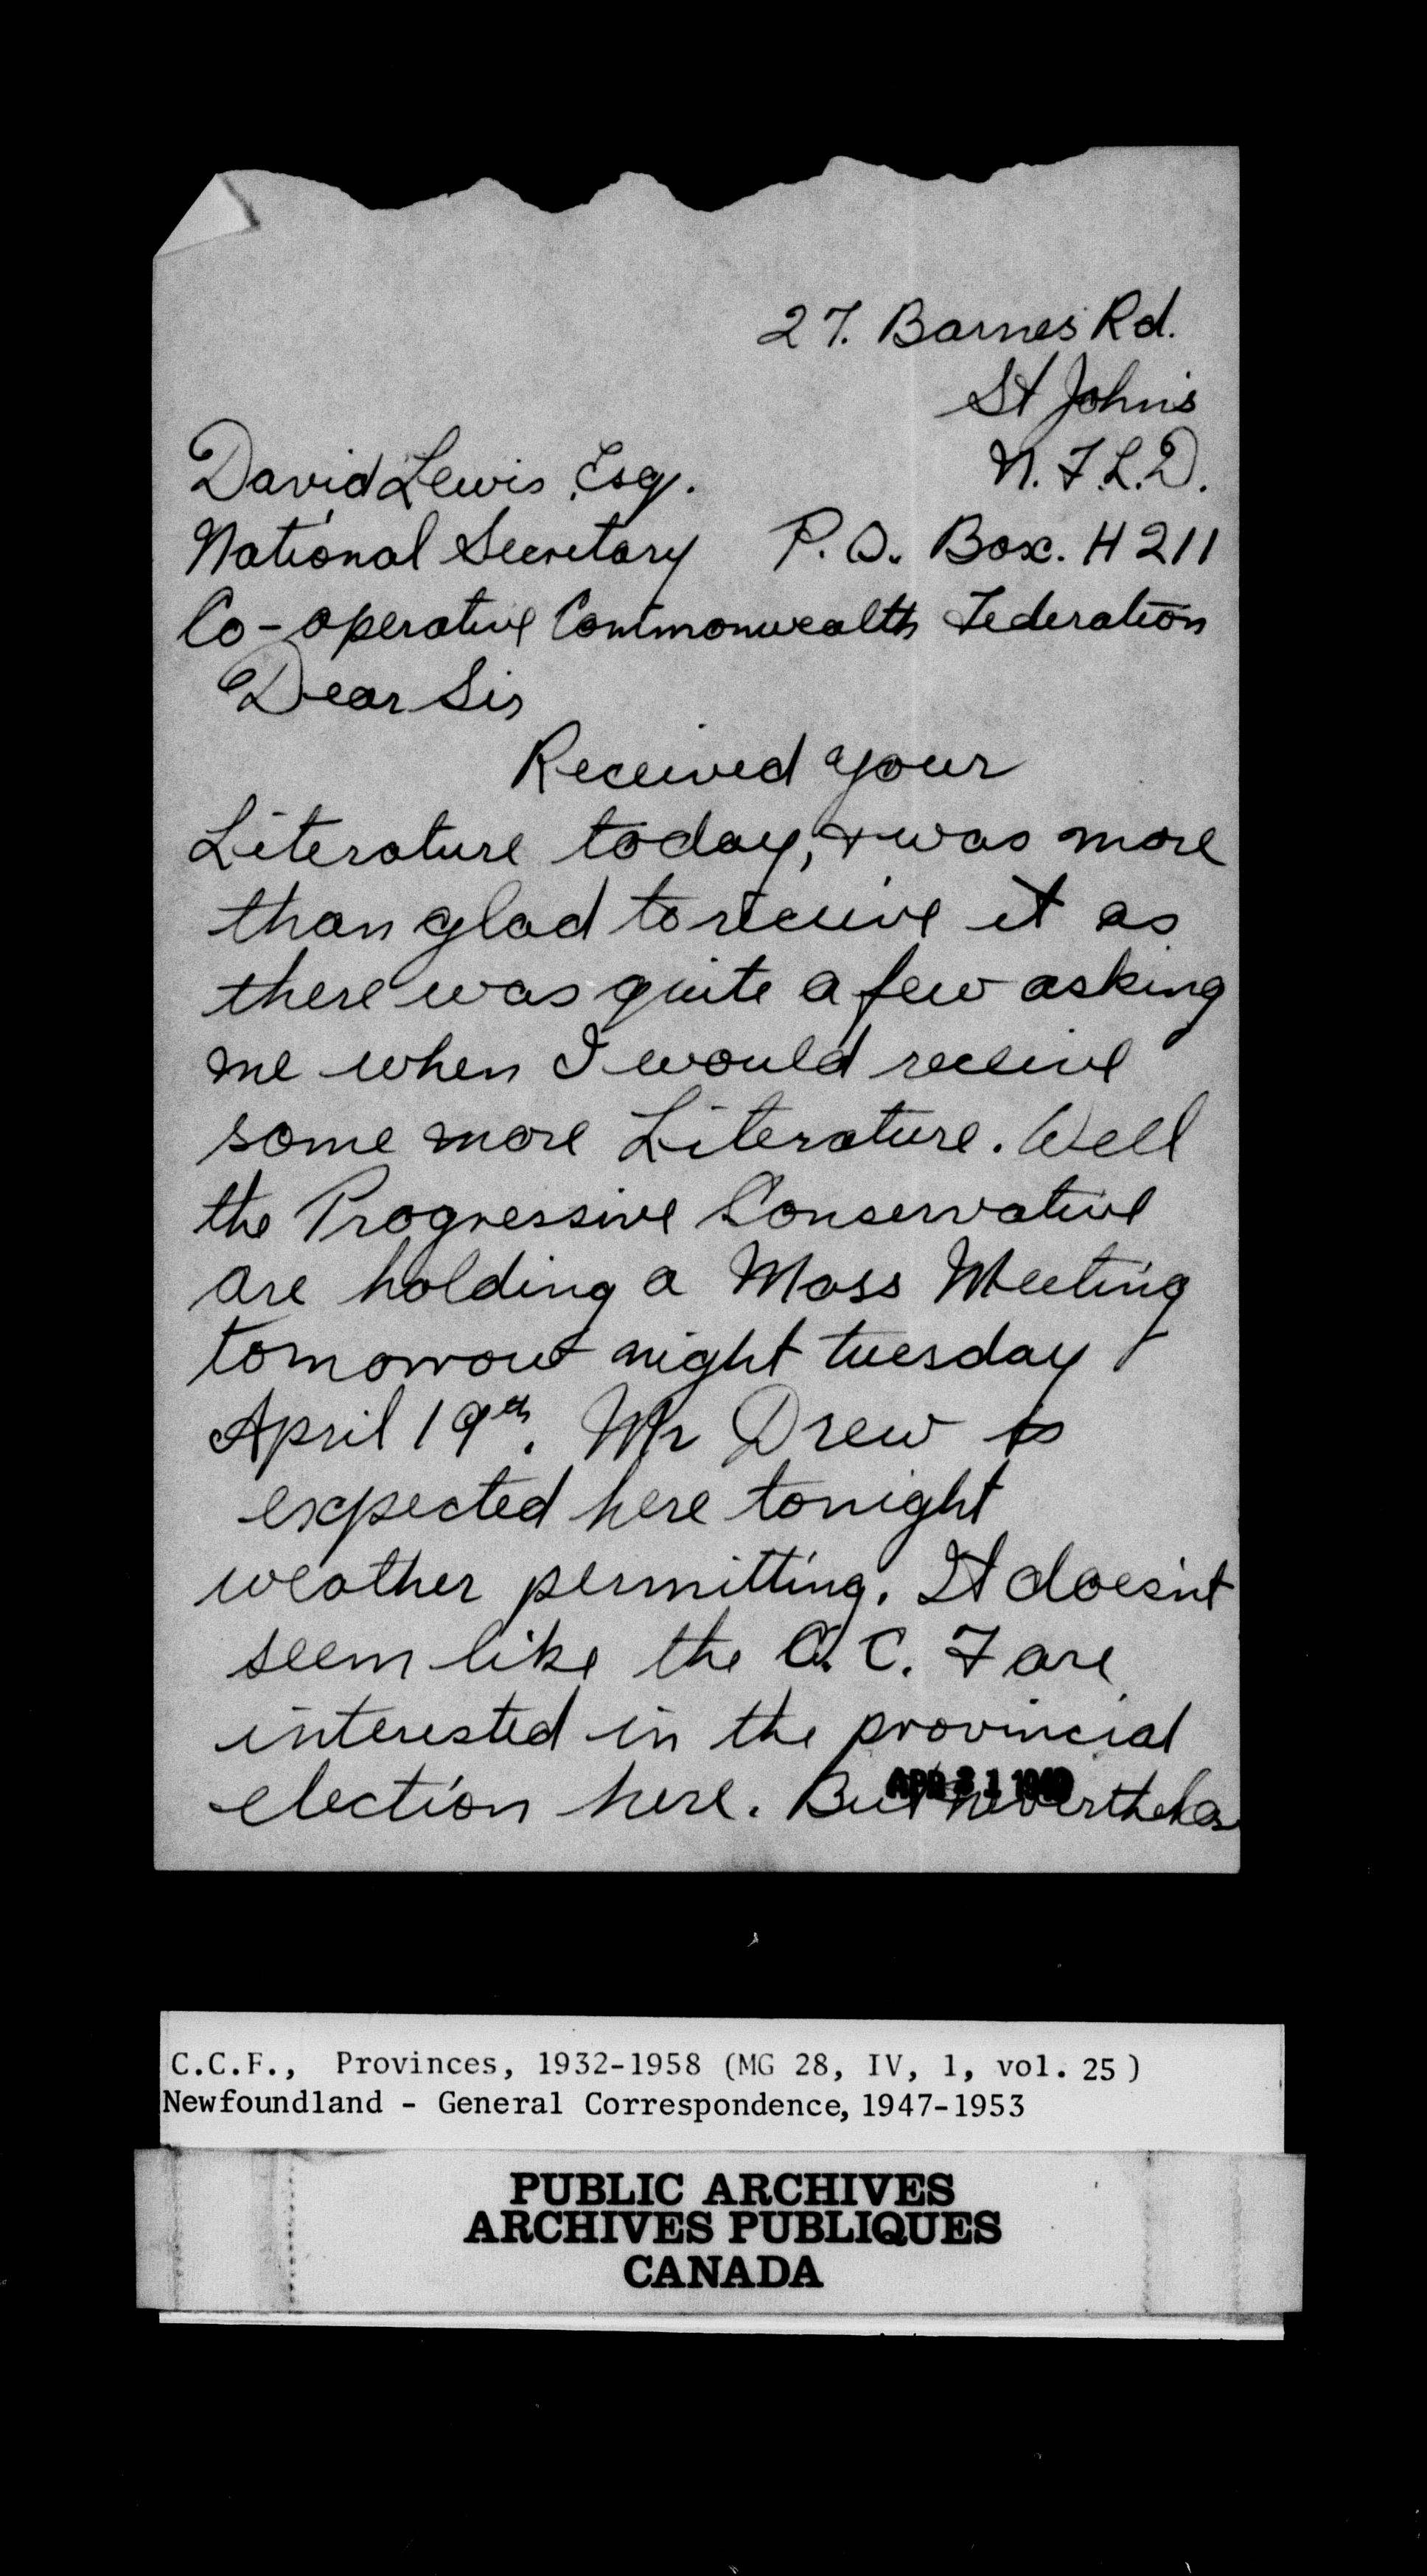 27. Barnes Rd.
St John's
N.F.L.D.
David Lewis, Esq.
National Secretary P.O. Box. H 211
Co-operative Commonwealth Federation
Dear Sir
Received your
Literature today, & was more
than glad to receive it as
there was quite a few asking
me when I would receive
some more Literature. Well
the Progressive Conservative
are holding a Mass Meeting
tomorrow night tuesday
April 19th. Mr Drew is
expected here tonight
weather permitting. It doesn't
seem like the C. C. F are
interested in the provincial
election here. But nevertheless
C.C.F., Provinces, 1932-1958 (MG 28, IV, 1, vol. 25 )
Newfoundland - General Correspondence, 1947-1953
PUBLIC ARCHIVES
ARCHIVES PUBLIQUES
CANADA